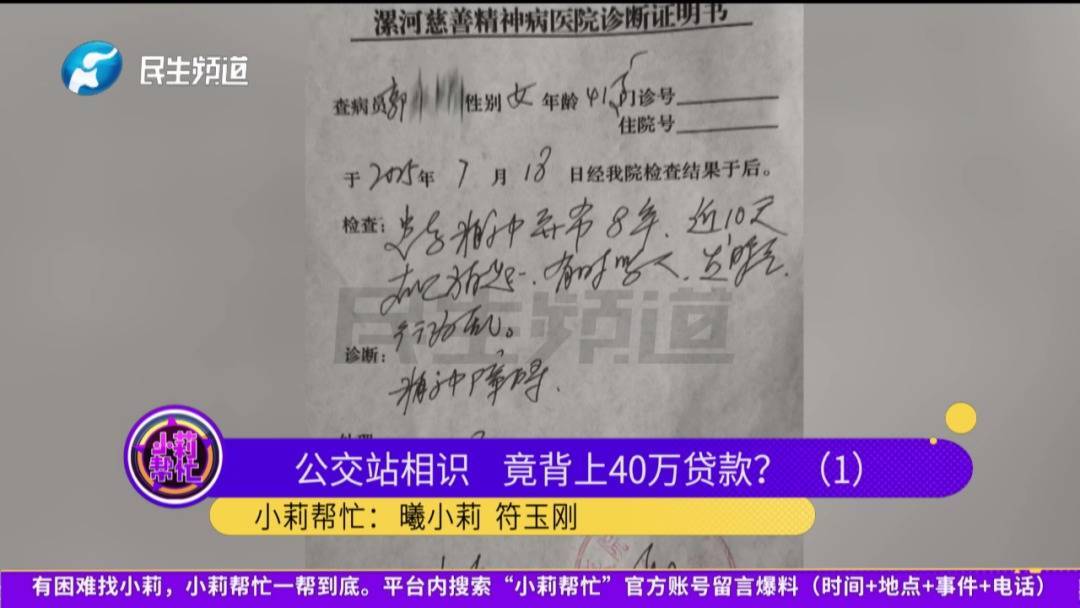 漯河慈善精神病医院诊断证明书
民生频道
查病员郭 性别 女 年龄 41岁 门诊号
住院号
于 2025年 7月 18日经我院检查结果于后。
检查: 患者精神异常8年、近10天
有时骂人
行为乱。
民生频道
诊断:
精神障碍.
小莉帮忙
公交站相识 竟背上40万贷款? (1)
小莉帮忙: 曦小莉 符玉刚
有困难找小莉，小莉帮忙一帮到底。平台内搜索“小莉帮忙”官方账号留言爆料（时间+地点+事件+电话）